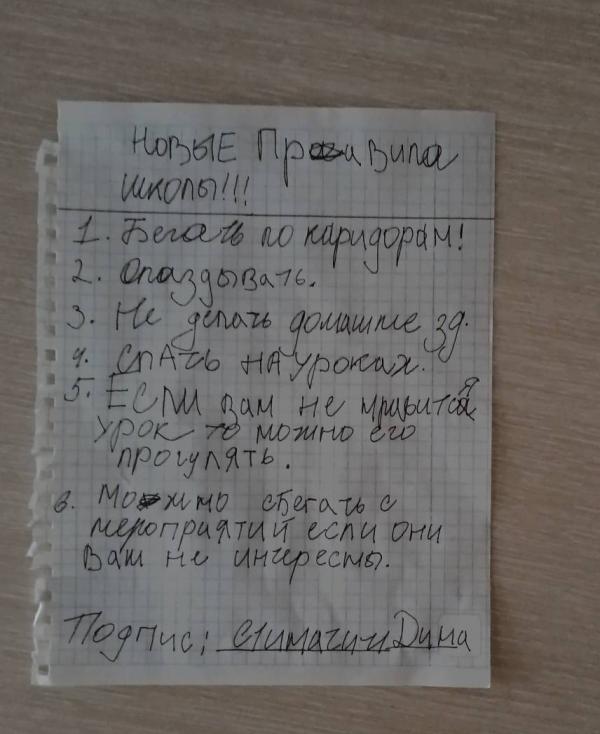 НОВЫЕ Правила
школы!!!
1. Бегать по каридорам!
2. Опаздывать.
3. Не делать домашние зд.
4. СПАТЬ НА УРОКАХ.
5. ЕСЛИ вам не нравится
урок то можно его
прогулять.
6. Можно сбегать с
мероприятий если они
Вам не интересты.
Подпис: Дима